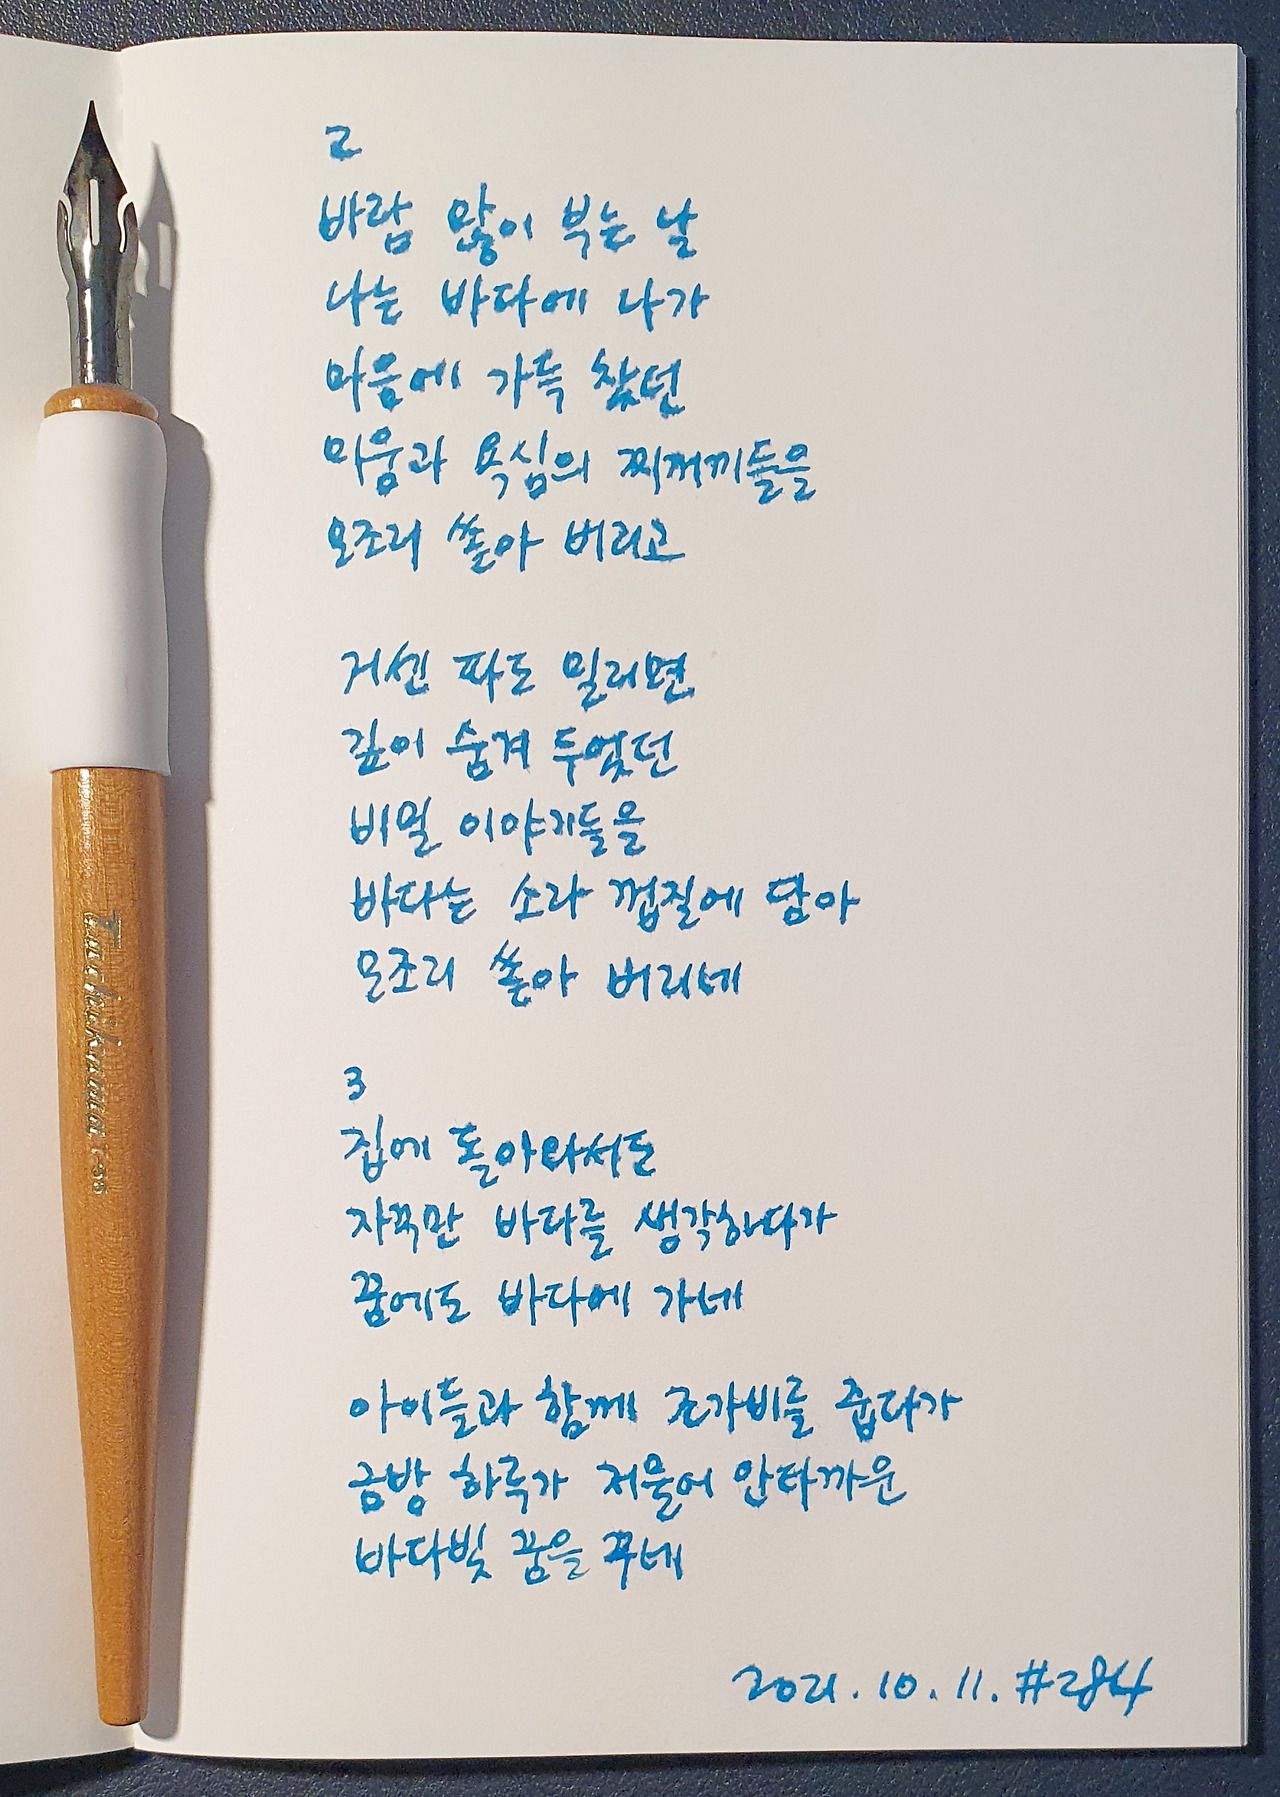 2
바람 많이 부는 날
나는 바다에 나가
마음에 가득 찼던
미움과 욕심의 찌꺼기들을
모조리 쏟아 버리고
거센 파도 밀리면
깊이 숨겨 두었던
비밀 이야기들을
바다는 소라 껍질에 담아
모조리 쏟아 버리네
3
집에 돌아와서도
자꾸만 바다를 생각하다가
꿈에도 바다에 가네
아이들과 함께 조가비를 줍다가
금방 하루가 저물어 안타까운
바다빛 꿈을 꾸네
2021.10.11.#284
Tachikawa T-36